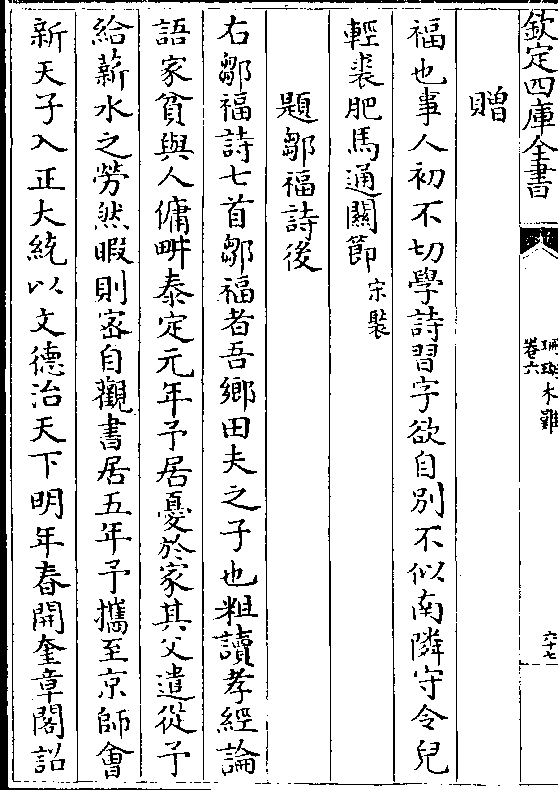 欽定四庫全書
珊瑚木難
卷六
六十七
贈
福也事人初不切學詩習字欲自別不似南隣守令兒
輕裘肥馬通關節宋褧
題鄒福詩後
右鄒福詩七首鄒福者吾鄉田夫之子也粗讀孝經論
語家貧與人傭畊泰定元年予居憂於家其父遣從予
給薪水之勞然暇則宻自觀書居五年予攜至京師會
新天子入正大統以文德治天下明年春開奎章閣詔